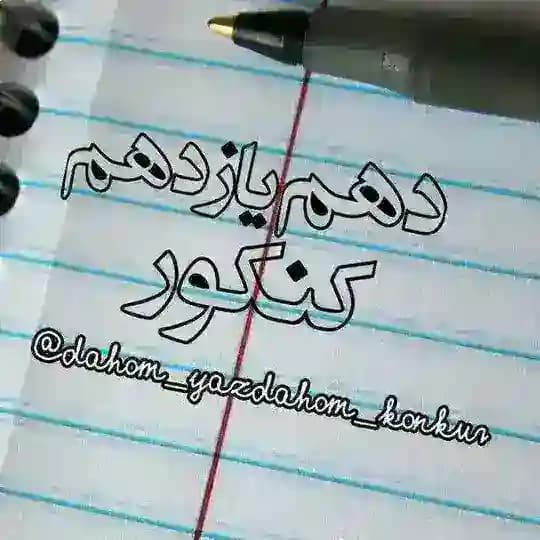 دهم یازدهم
کنکور
@dahom_yazdahom_konkur